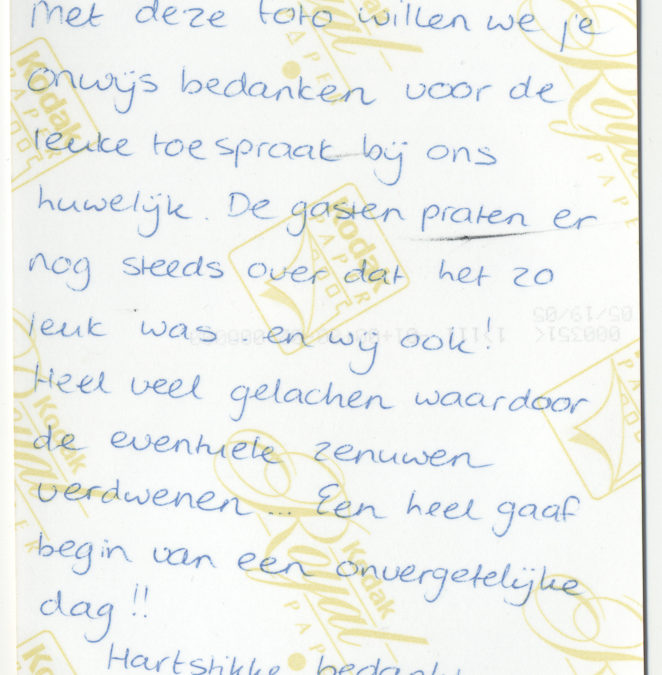 Met deze foto willen we je
onwijs bedanken voor de
leuke toespraak bij ons
huwelijk. De gasten praten er
nog steeds over dat het zo
leuk was... en wij ook!
Heel veel gelachen waardoor
de eventuele zenuwen
verdwenen... Een heel gaaf
begin van een onvergetelijke
dag!!
Hartstikke bedankt